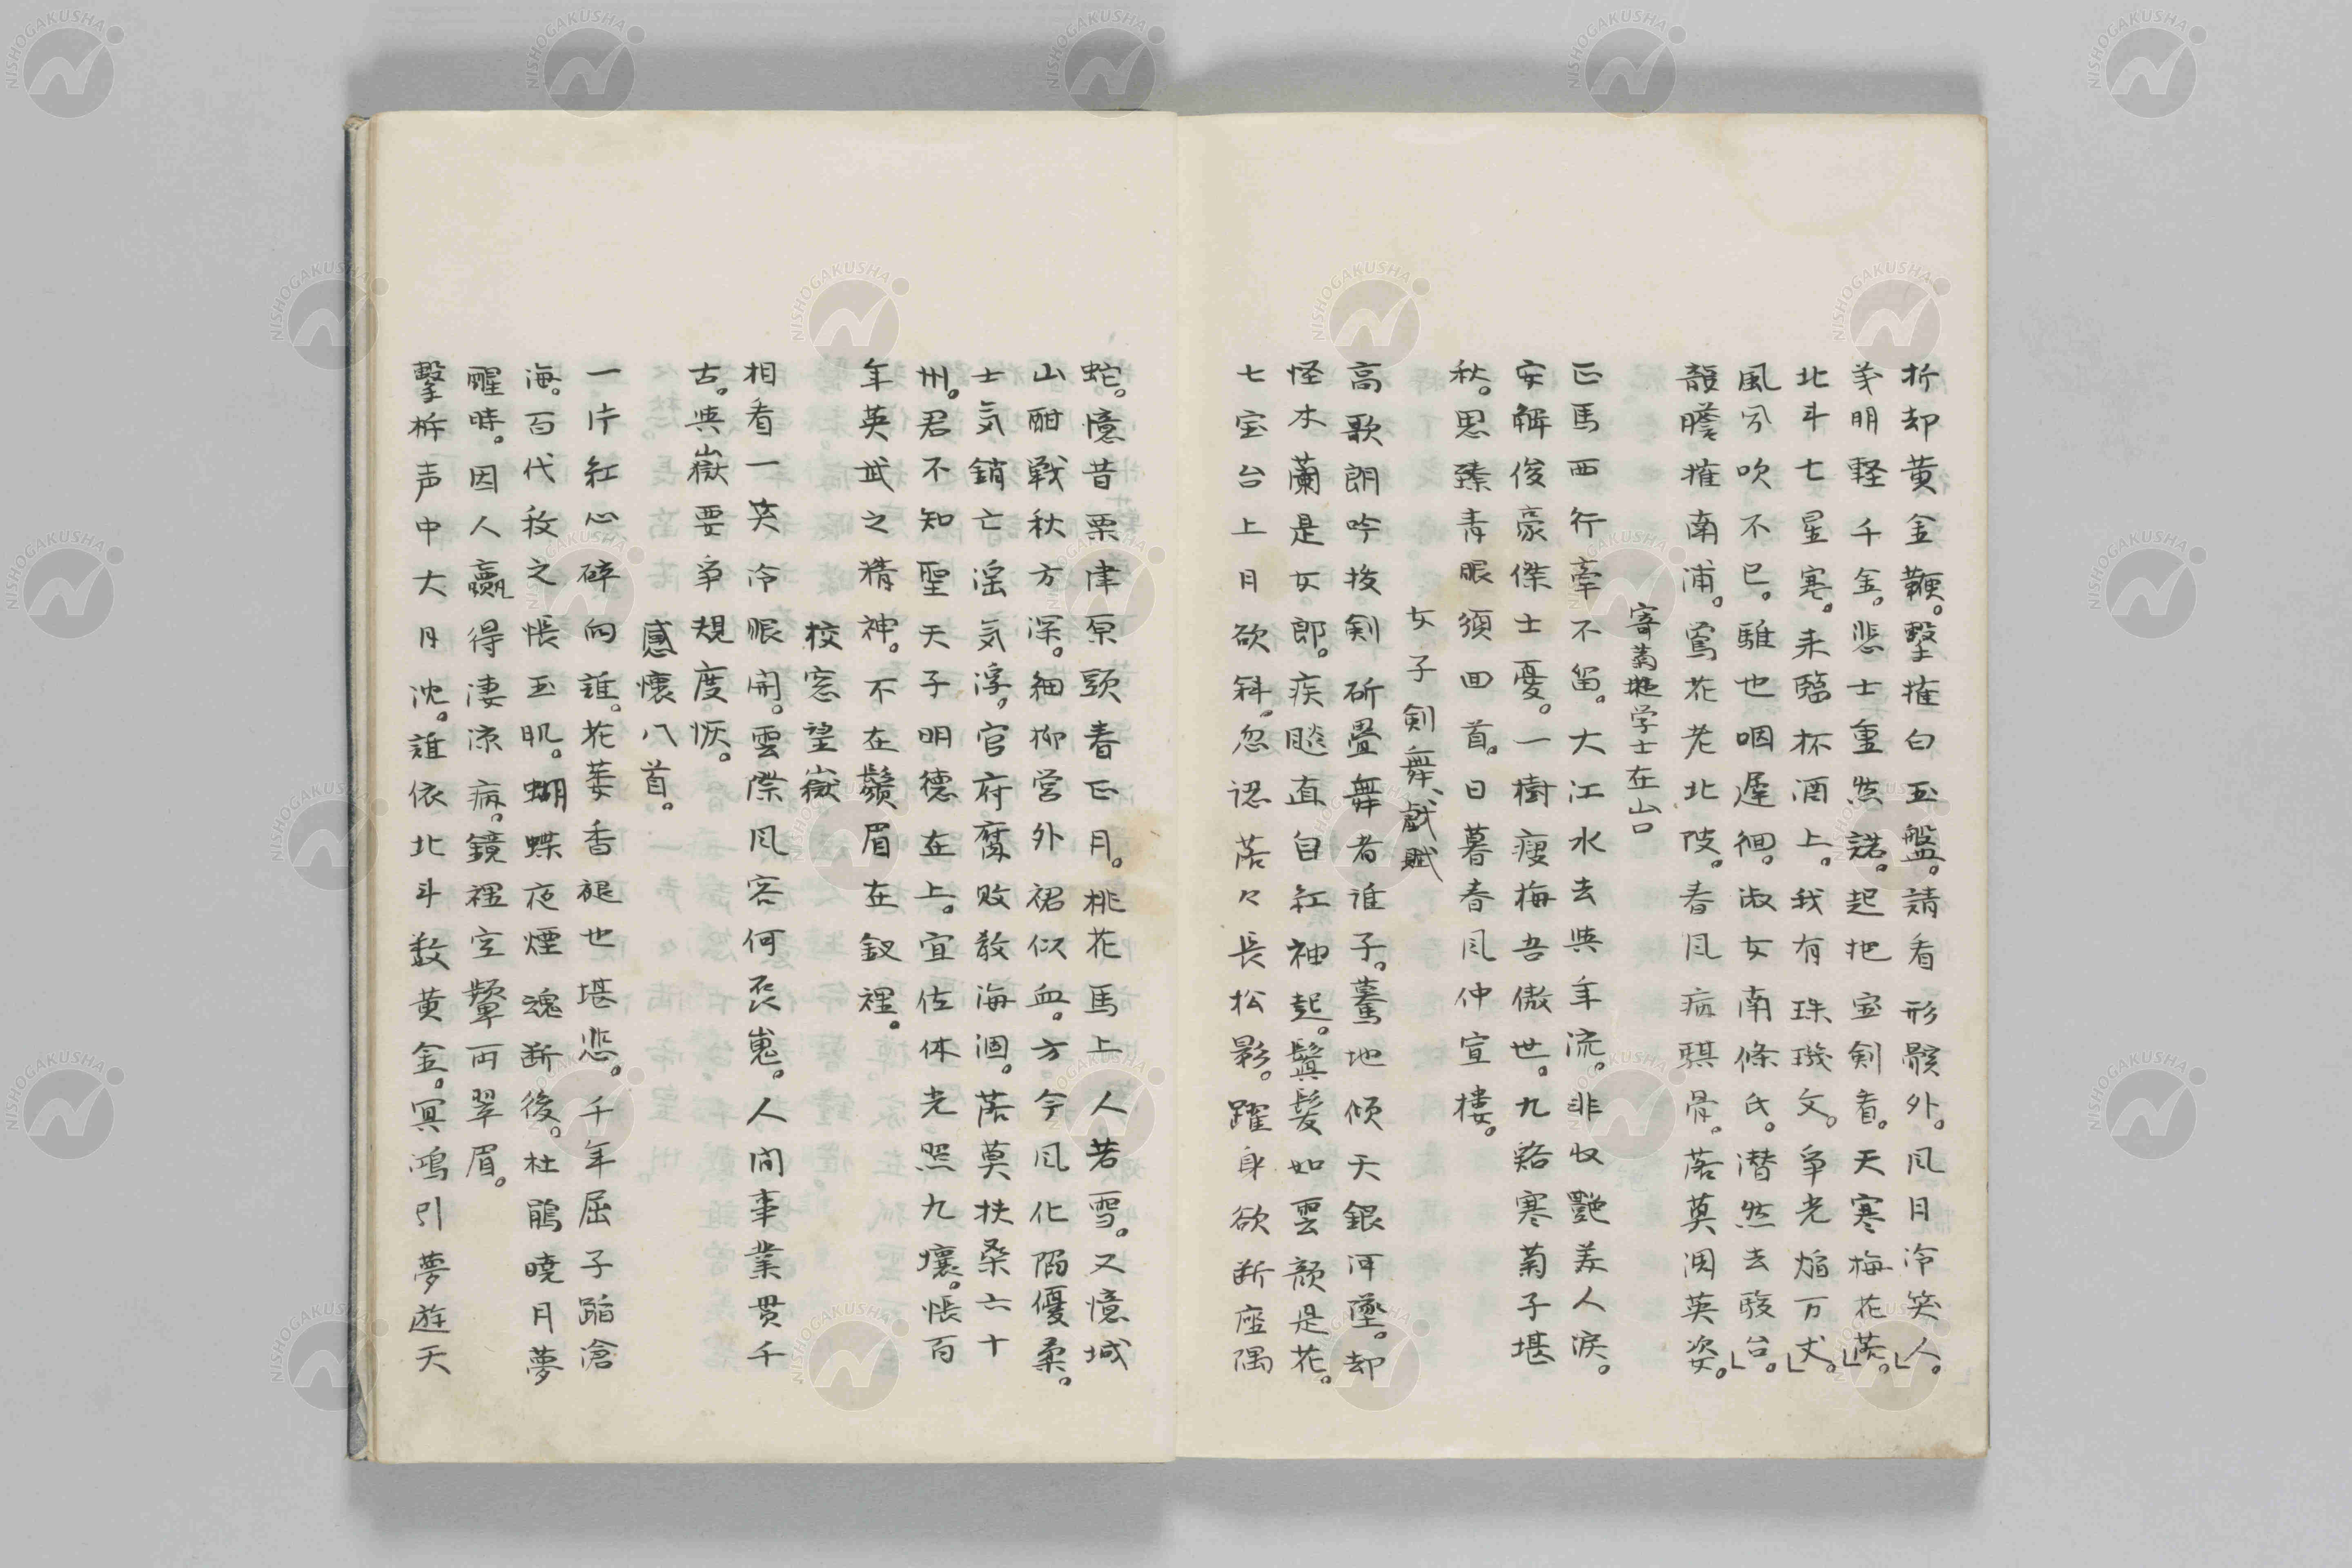 折却黄金鞭。撃摧白玉盤。請看形骸外。风月冷笑人。
義明軽千金。悲士重然諾。起把宝剣看。天寒梅花落。
北斗七星寒。来臨杯酒上。我有珠璣文。争光焔万丈。
風兮吹不已。騅也咽遅徊。淑女南條氏。潜然去駿台。
龍膽摧南浦。鶯花老北陂。春风病騏骨。落莫涸英姿。
寄菊池学士在山口
匹馬西行牽不留。大江水去与年流。非収艶美人涙。
安解俊豪傑士憂。一樹瘦梅吾傲世。九谿寒菊子堪
秋。思臻青眼須回首。日暮春风仲宣楼。
女子剣舞、戯賦
高歌朗吟抜剣斫畳舞者谁子。驀地傾天銀河墜。却
怪木蘭是女郎。疾颷直自紅袖起。鬒髪如雲顔是花。
七宝台上月欲斜。忽認落々長松影。躍身欲断座隅
蛇。憶昔栗津原頭春正月。桃花馬上人若雪。又憶城
山酣戦秋方深。細柳営外裙似血。方今风化陥優柔。
士気銷亡淫気浮。官府腐敗教海涸。落莫扶桑六十
州。君不知聖天子明徳在上。宜佐休光照九壤。悵百
年英武之精神。不在鬚眉在釵裡。
校窓望嶽
相看一笑冷眼開。雲際风容何哀嵬。人间事業貫千
古。与嶽要争規度恢。
感懐八首。
一片紅心砕向誰。花萎香褪也堪悲。千年屈子蹈滄
海。百代孜之悵玉肌。蝴蝶夜煙魂断後。杜鵑暁月夢
醒時。因人贏得凄凉病。鏡裡空顰両翠眉。
撃柝声中大月沈。誰依北斗数黄金。冥鴻引夢遊天